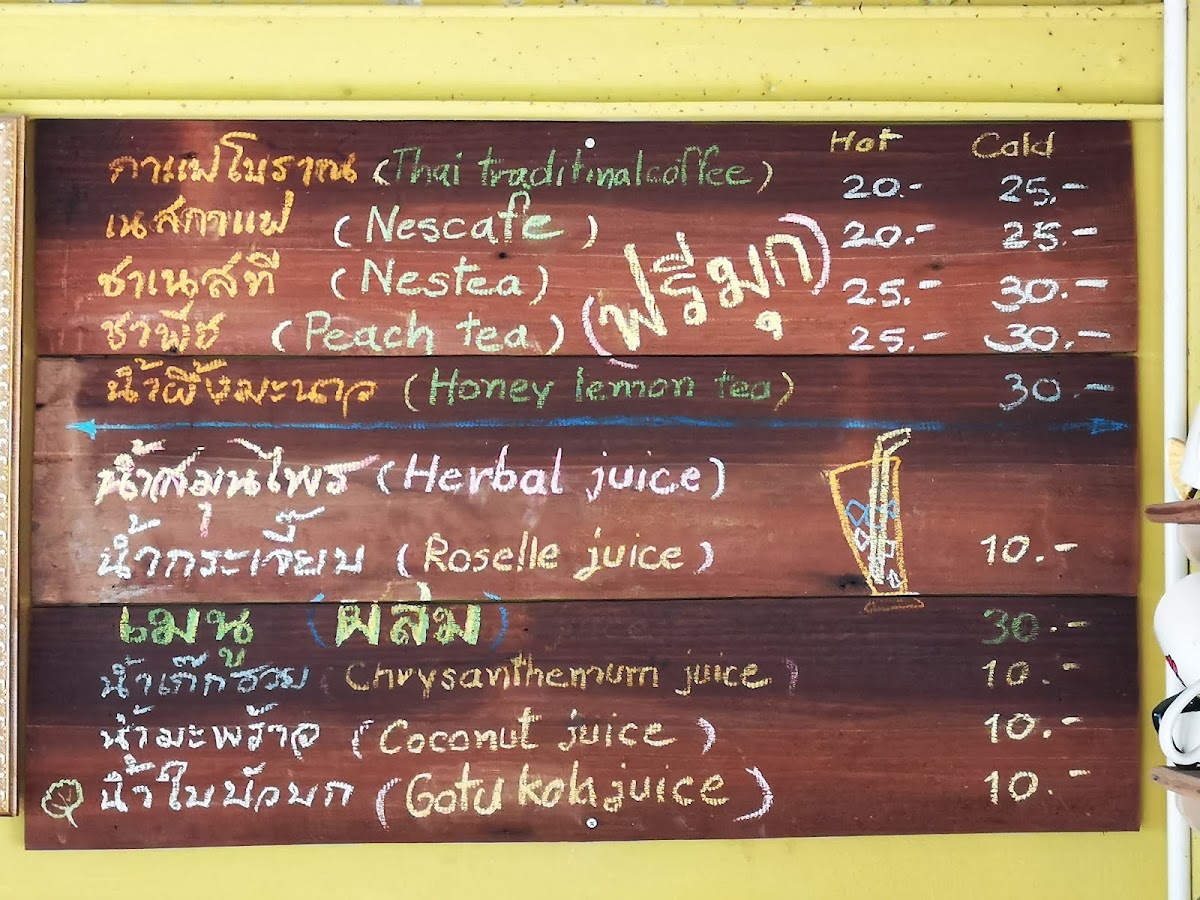 Hot Cold
กาแฟโบราณ (Thai traditinal coffee) 20.- 25.-
เนสกาแฟ (Nescafe) 20.- 25.-
ชาเนสที (Nestea) 25.- 30.-
(ฟรีมุก)
ชาพีช (Peach tea) 25.- 30.-
น้ำผึ้งมะนาว (Honey lemon tea) 30.-
น้ำสมุนไพร (Herbal juice)
น้ำกระเจี๊ยบ (Roselle juice) 10.-
เมนู (ผสม) 30.-
น้ำเก๊กฮวย (Chrysanthemum juice) 10.-
น้ำมะพร้าว (Coconut juice) 10.-
น้ำใบบัวบก (Gotu kola juice) 10.-